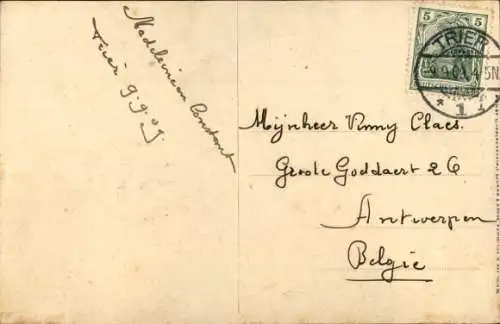 Madeleine en Constant
Trier 9.9.09
5 5
TRIER
9.9.09. 4-5N
* 1 *
Mijnheer Remy Claes.
Groote Goddaert 26
Antwerpen
Belgie